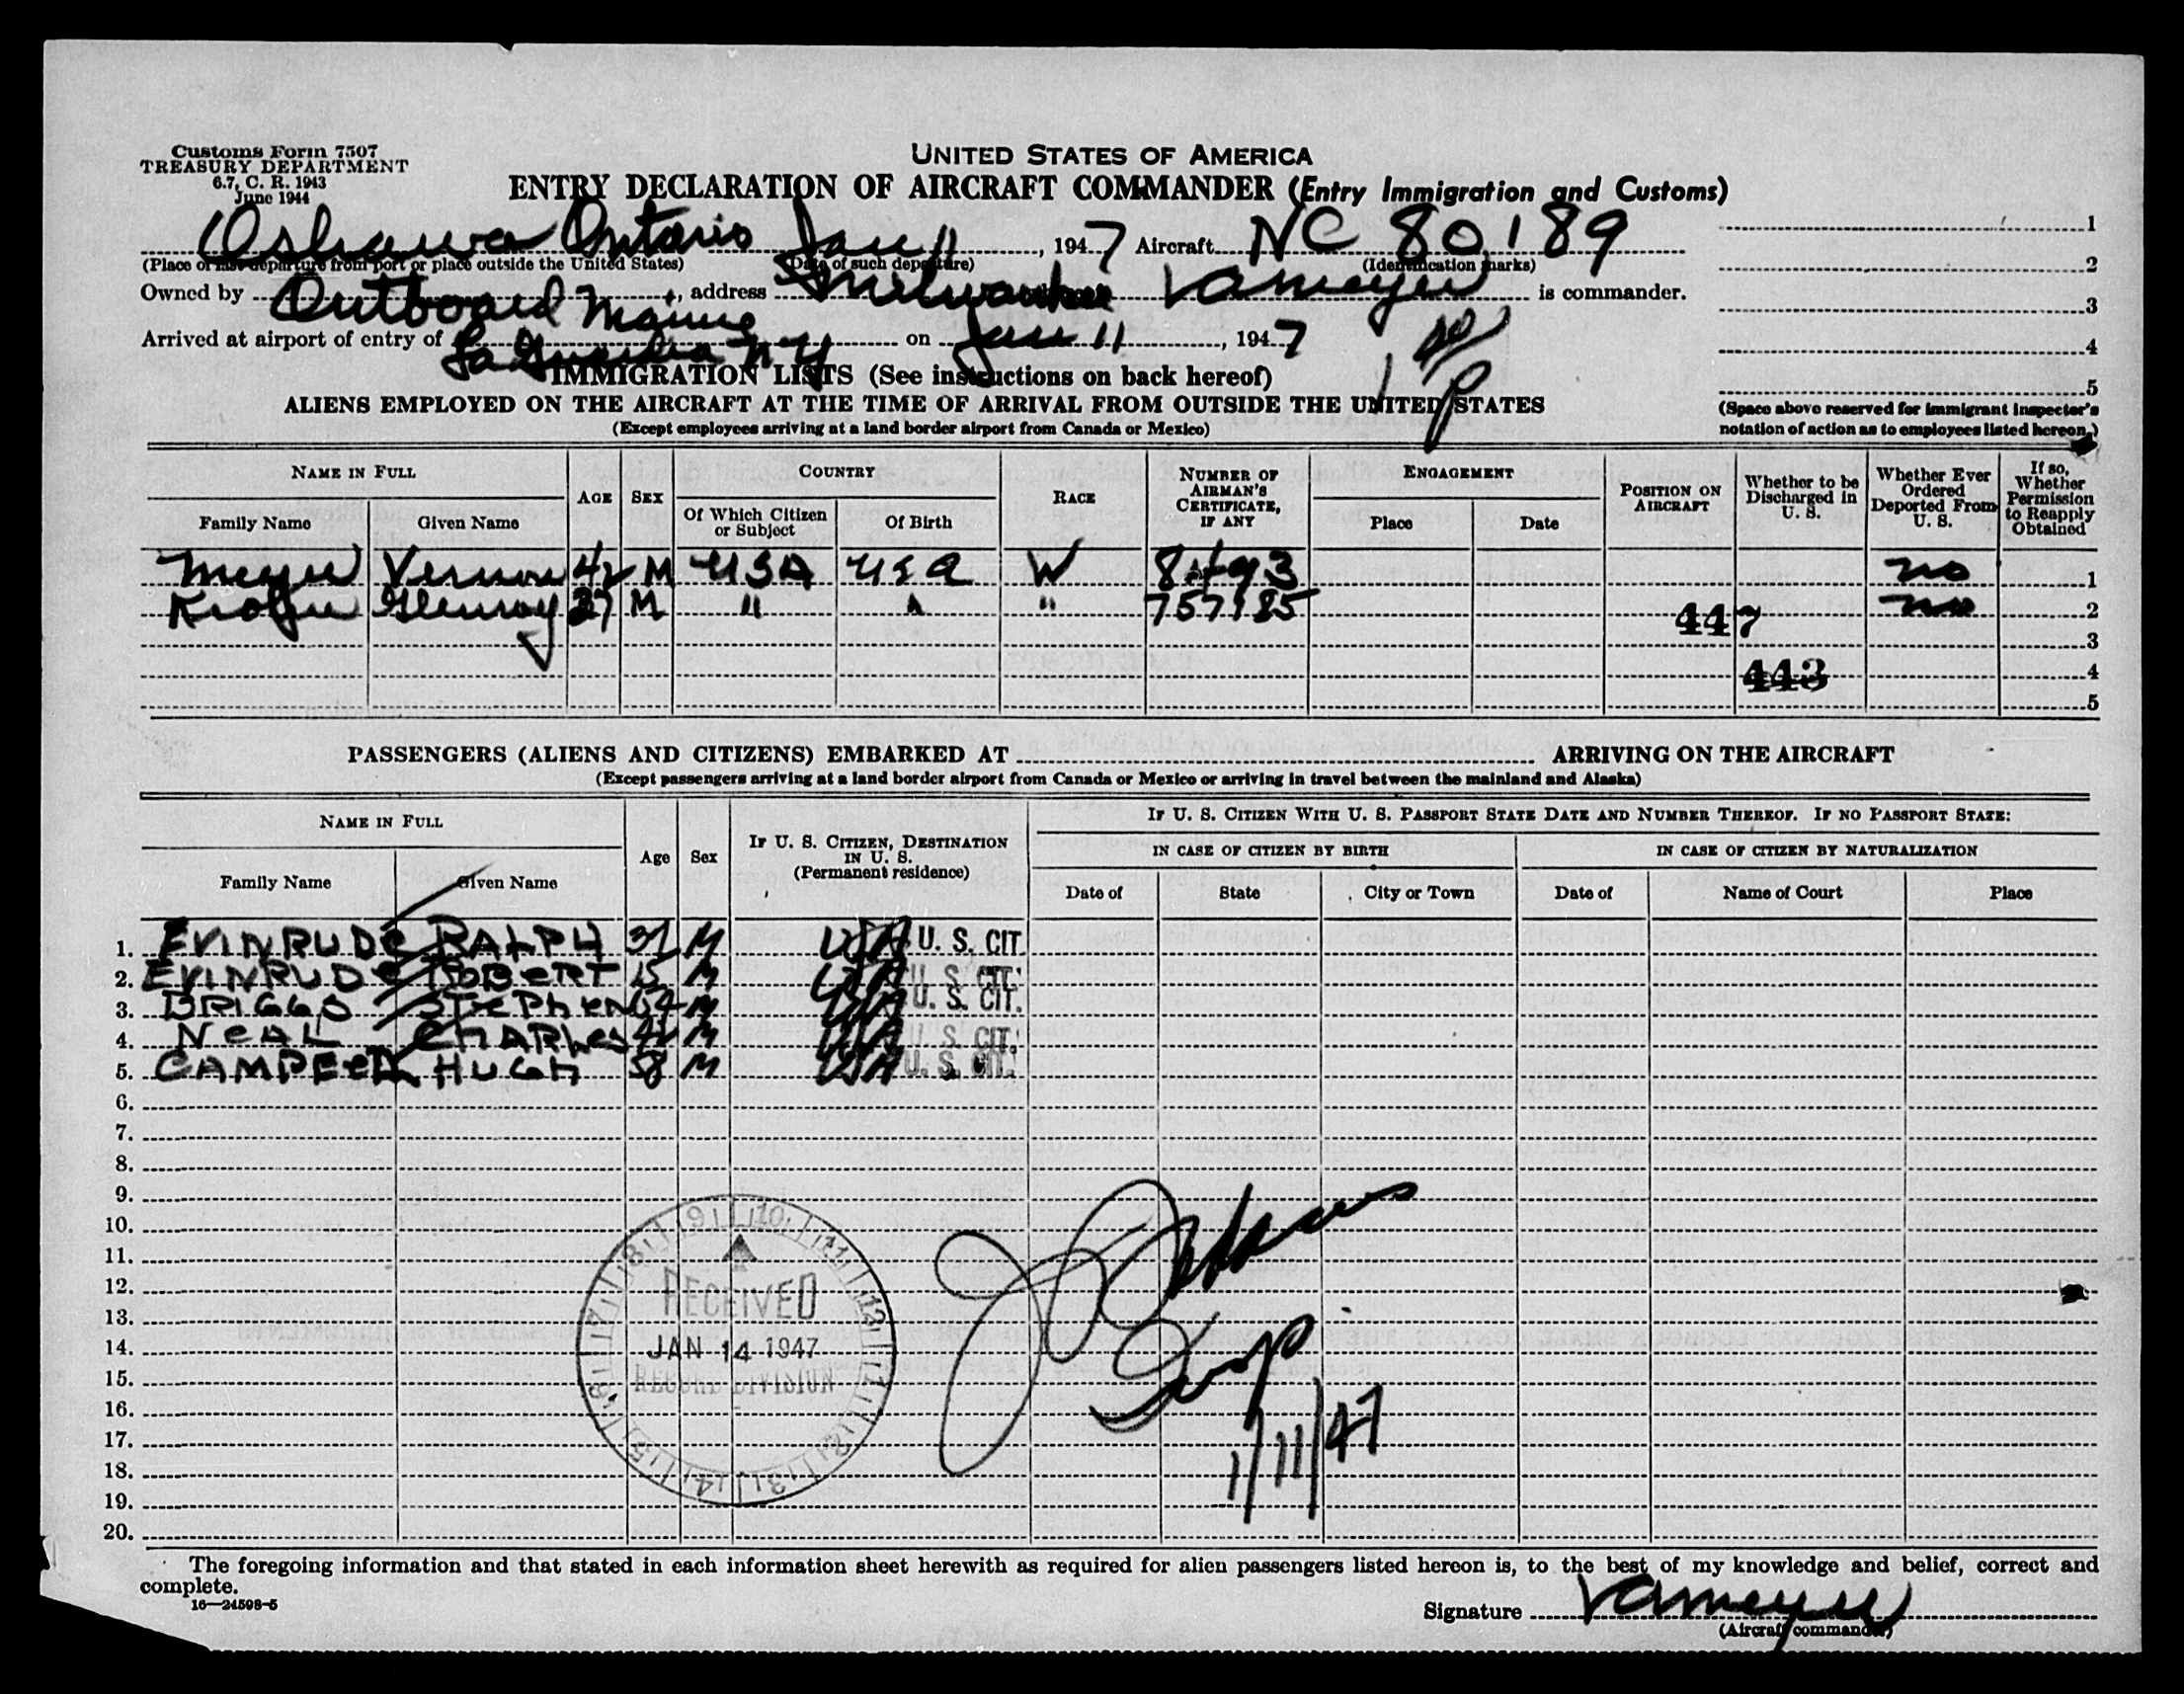 Customs Form 7507
TREASURY DEPARTMENT
6.7, C. R. 1943
June 1944
UNITED STATES OF AMERICA
ENTRY DECLARATION OF AIRCRAFT COMMANDER (Entry Immigration and Customs)
Oshawa Ontario Jan 11, 1947 Aircraft NC 80189
(Place of last departure from port or place outside the United States) (Date of such departure) (Identification marks)
Owned by Outboard Marine, address Milwaukee VAMeyer is commander.
Arrived at airport of entry of La Guardia N Y on Jan 11, 1947
1
2
3
4
5
(Space above reserved for immigrant inspector's notation of action as to employees listed hereon.)
IMMIGRATION LISTS (See instructions on back hereof)
ALIENS EMPLOYED ON THE AIRCRAFT AT THE TIME OF ARRIVAL FROM OUTSIDE THE UNITED STATES
(Except employees arriving at a land border airport from Canada or Mexico)
NAME IN FULL AGE SEX COUNTRY RACE NUMBER OF AIRMAN'S CERTIFICATE, IF ANY ENGAGEMENT POSITION ON AIRCRAFT Whether to be Discharged in U. S. Whether Ever Ordered Deported From U. S. If so, Whether Permission to Reapply Obtained
Family Name Given Name Of Which Citizen or Subject Of Birth Place Date
Meyer Vernon 42 M USA USA W 8493 no 1
Glenroy 37 M " " " 757185 no 2
447
3
443 4
5
PASSENGERS (ALIENS AND CITIZENS) EMBARKED AT ARRIVING ON THE AIRCRAFT
(Except passengers arriving at a land border airport from Canada or Mexico or arriving in travel between the mainland and Alaska)
NAME IN FULL Age Sex IF U. S. CITIZEN, DESTINATION IN U. S. (Permanent residence) IF U. S. CITIZEN WITH U. S. PASSPORT STATE DATE AND NUMBER THEREOF. IF NO PASSPORT STATE:
IN CASE OF CITIZEN BY BIRTH IN CASE OF CITIZEN BY NATURALIZATION
Family Name Given Name Date of State City or Town Date of Name of Court Place
1. EVINRUDE RALPH 37 M USA U. S. CIT.
2. EVINRUDE ROBERT 15 M USA U. S. CIT.
3. BRIGGS STEPHEN M USA U. S. CIT.
4. NEAL CHARLES 42 M USA U. S. CIT.
5. HUGH 58 M USA U. S. CIT.
6.
7.
8.
9.
10.
11.
12.
13.
14.
15.
16.
17.
18.
19.
20.
9 10 11 12 1 2 3 4 5 6 7 8
RECEIVED
JAN 14 1947
RECORD DIVISION
Insp
1/11/47
The foregoing information and that stated in each information sheet herewith as required for alien passengers listed hereon is, to the best of my knowledge and belief, correct and
complete.
16—24598-5
Signature VAMeyer
(Aircraft commander)